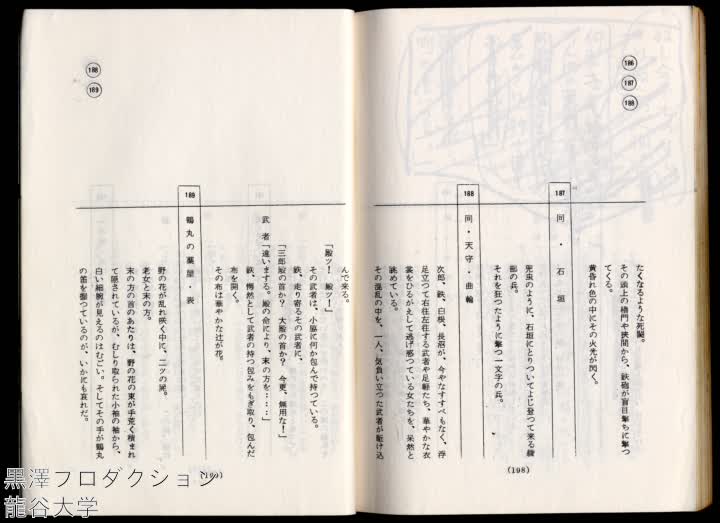 186
187
188
たくなるような死闘。
その頭上の櫓門や狭間から、鉄砲が盲目撃ちに撃つ
てくる。
黄昏れ色の中にその火光が閃く。
187
同・石垣
兜虫のように、石垣にとりついてよじ登つて来る綾
部の兵。
それを狂つたように撃つ一文字の兵。
188
同・天守・曲輪
次郎、鉄、白根、長沼が、今やなすすべもなく、浮
足立つて右往左往する武者や足軽たち、華やかな衣
裳をひるがえして逃げ惑つている女たちを、呆然と
眺めている。
その混乱の中を、一人、気負い立つた武者が駆け込
(198)
188
189
んで来る。
「殿ツ! 殿ツ!」
その武者は、小脇に何か包んで持つている。
鉄、走り寄るその武者に、
「三郎殿の首か? 大殿の首か? 今更、無用な!」
武者「違いまする。殿の命により、末の方を‥‥」
鉄、愕然として武者の持つ包みをもぎ取り、包んだ
布を開く。
その布は華やかな辻が花。
189
鶴丸の藁屋・表
野の花が乱れ咲く中に、二ツの屍。
老女と末の方。
末の方の首のあたりは、野の花の束が手荒く積まれ
て隠されているが、むしり取られた小袖の袖から、
白い細腕が見えるのはむごい。そしてその手が鶴丸
の笛を握つているのが、いかにも哀れだ。
(199)
黒澤プロダクション
龍谷大学